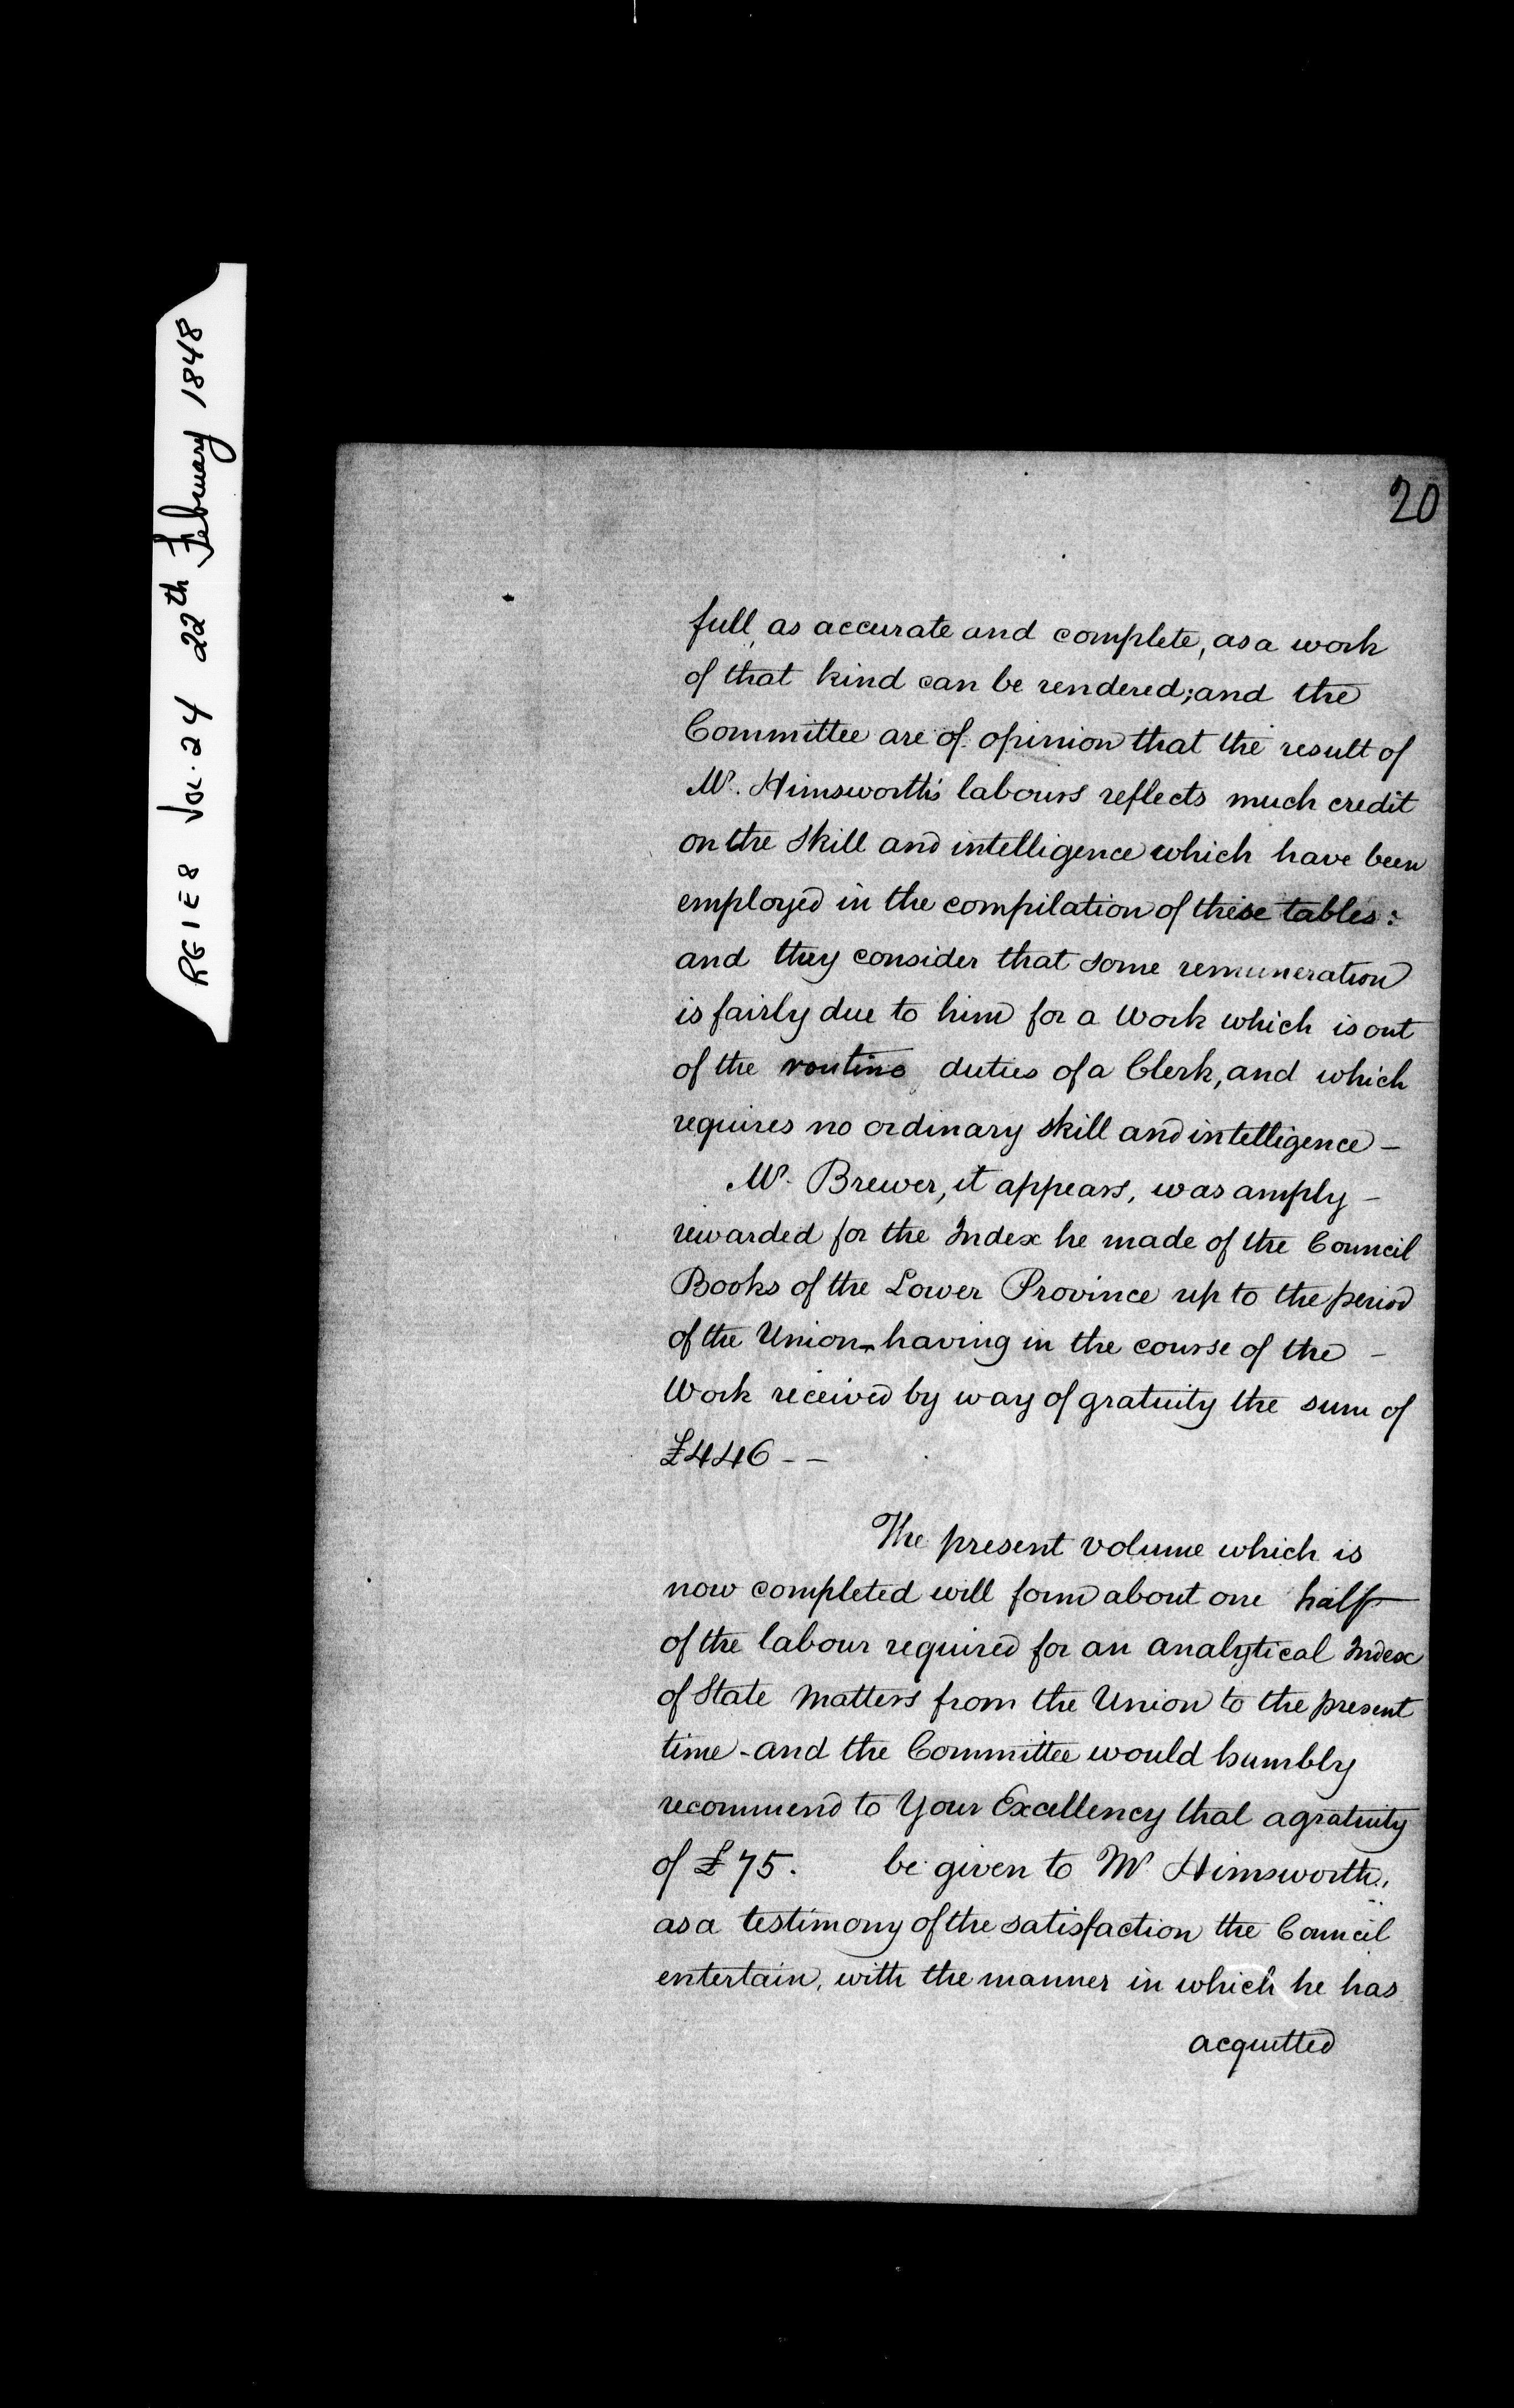 RG 1 E 8 Vol. 24 22th February 1848
20
full, as accurate and complete, as a work
of that kind can be rendered; and the
Committee are of opinion that the result of
Mr. Himsworth's labours reflects much credit
on the skill and intelligence which have been
employed in the compilation of these tables:
and they consider that some remuneration
is fairly due to him for a Work which is out
of the routine duties of a Clerk, and which
requires no ordinary skill and intelligence –
Mr. Brewer, it appears, was amply –
rewarded for the Index he made of the Council
Books of the Lower Province up to the period
of the Union – having in the course of the –
Work received by way of gratuity the sum of
£446 – –
The present volume which is
now completed will form about one half
of the labour required for an analytical Index
of State Matters from the Union to the present
time – and the Committee would humbly
recommend to Your Excellency that a gratuity
of £75. be given to Mr Himsworth,
as a testimony of the satisfaction the Council
entertain, with the manner in which he has
acquitted